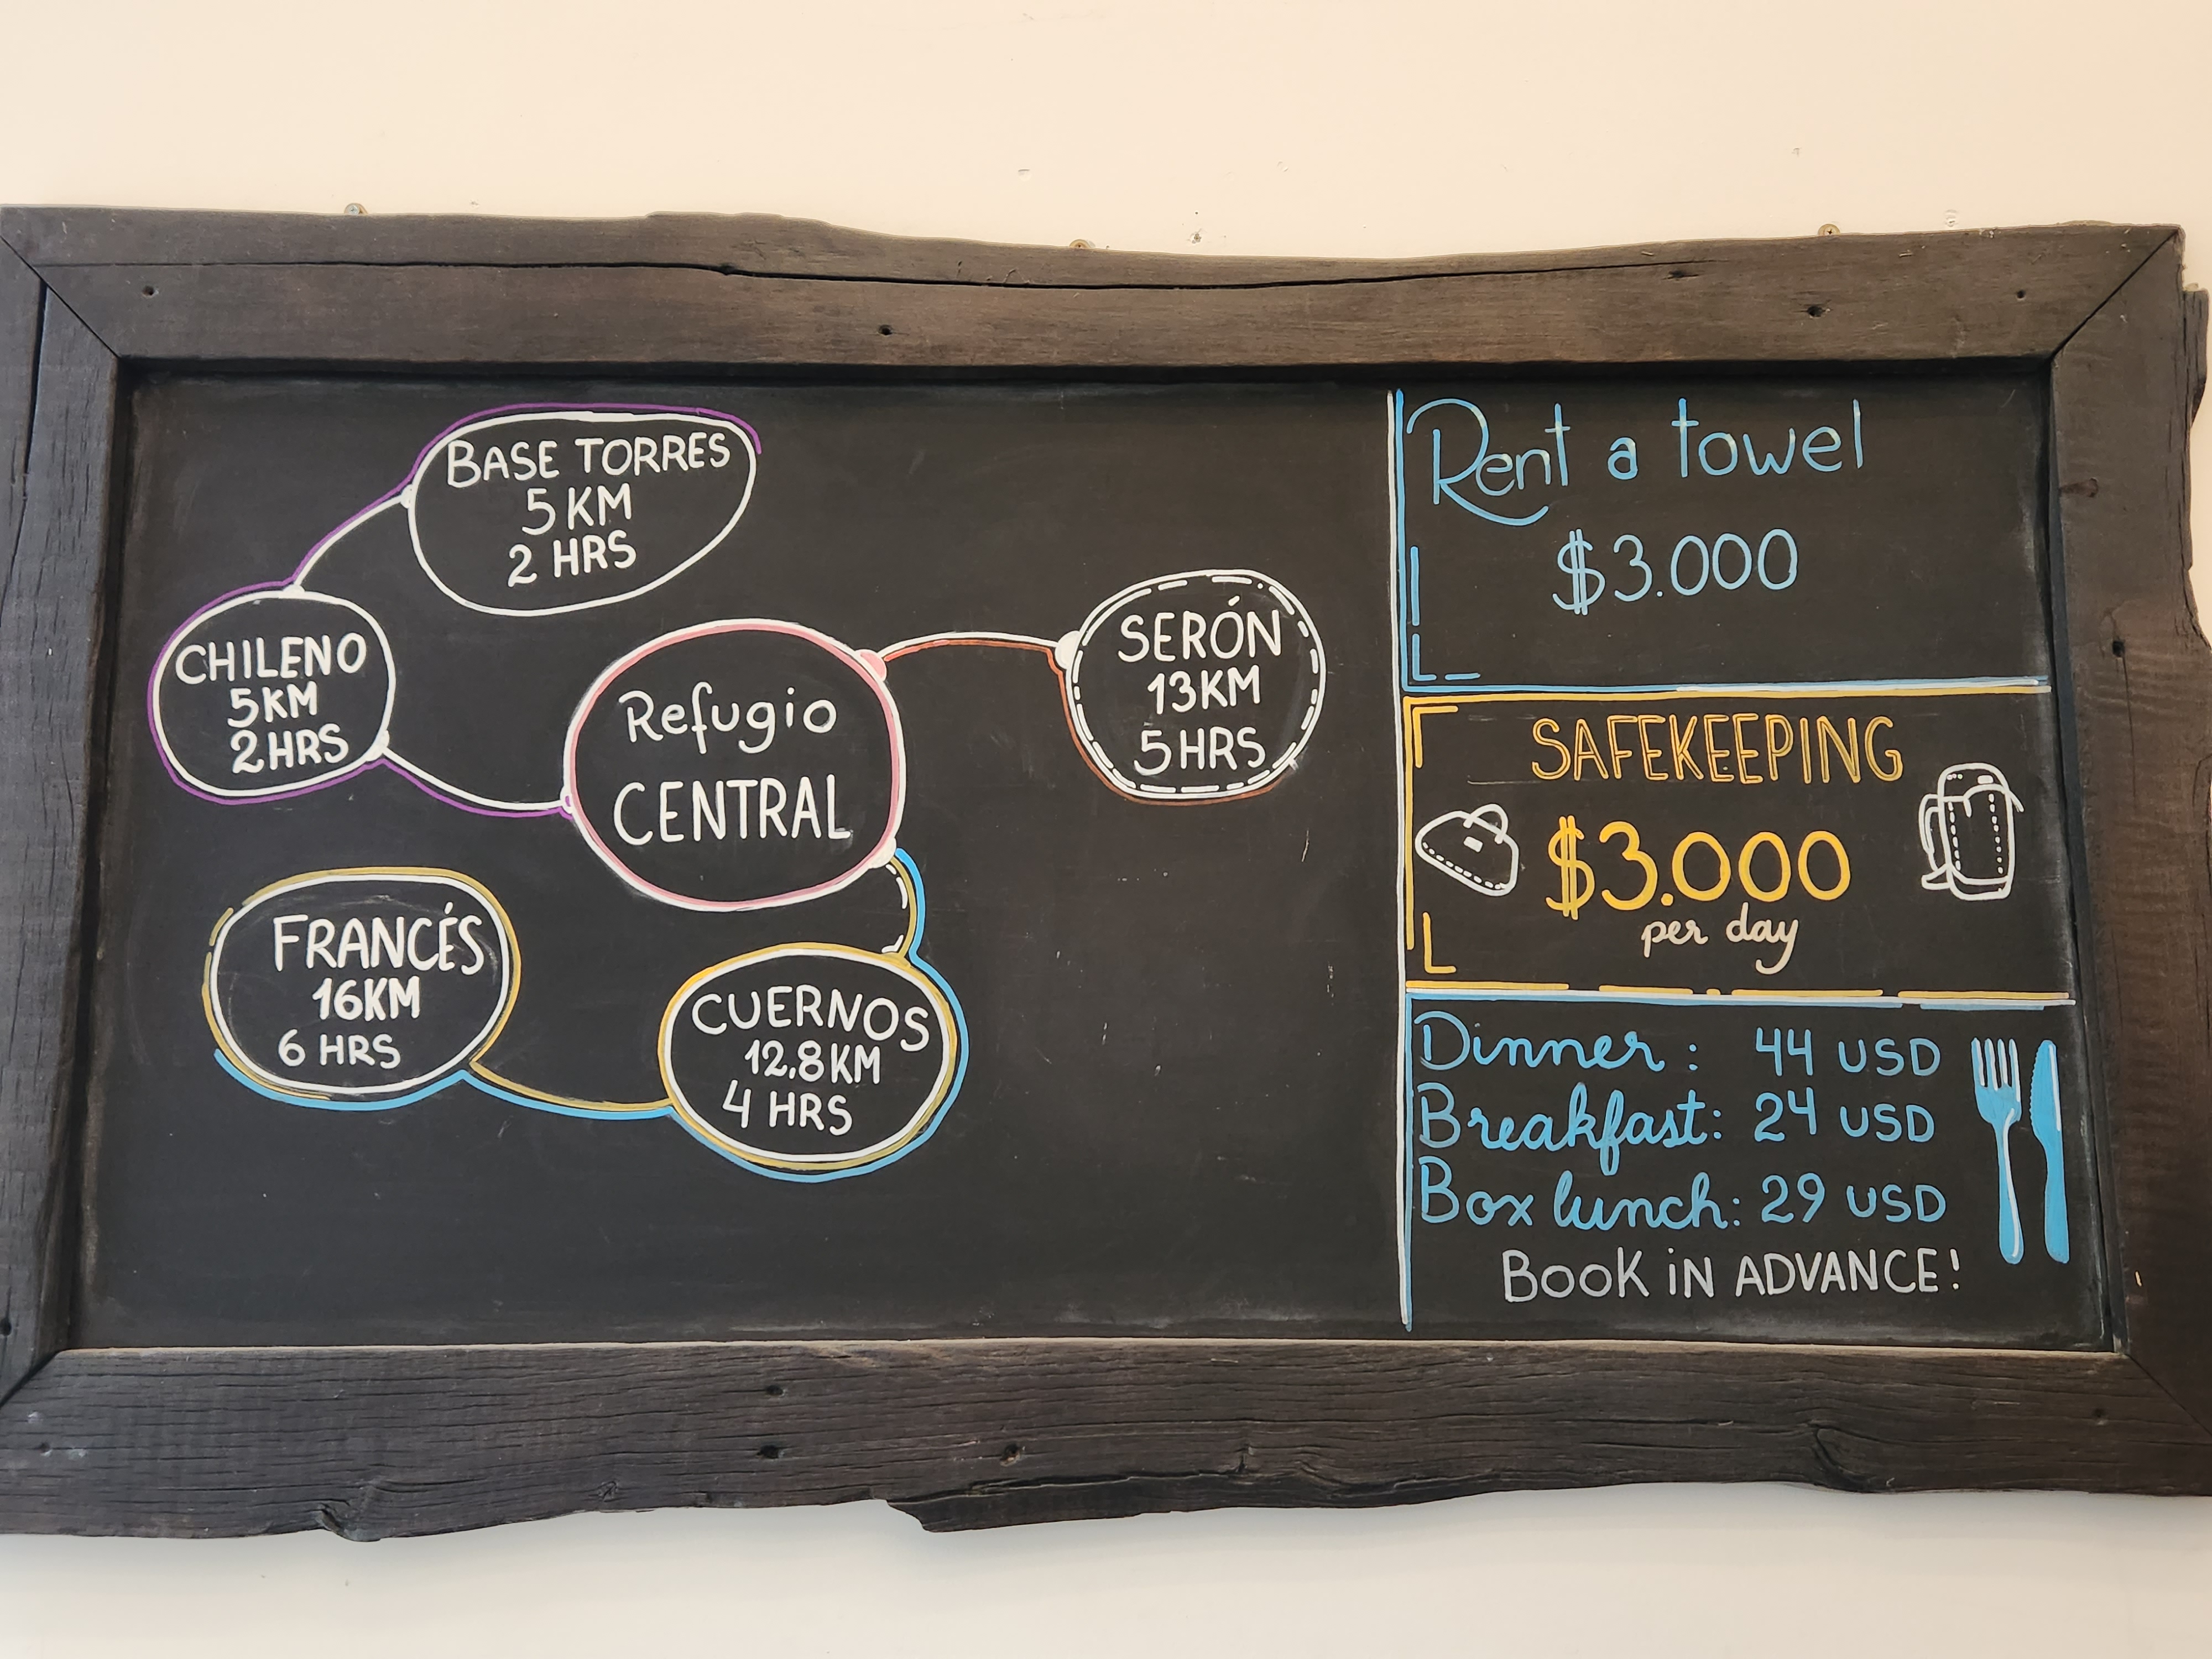 BASE TORRES
5 KM
2 HRS
CHILENO
5KM
2HRS
Refugio
CENTRAL
SERÓN
13KM
5HRS
FRANCÉS
16KM
6 HRS
CUERNOS
12,8KM
4 HRS
Rent a towel
$3.000
SAFEKEEPING
$3.000
per day
Dinner: 44 USD
Breakfast: 24 USD
Box lunch: 29 USD
BOOK iN ADVANCE!